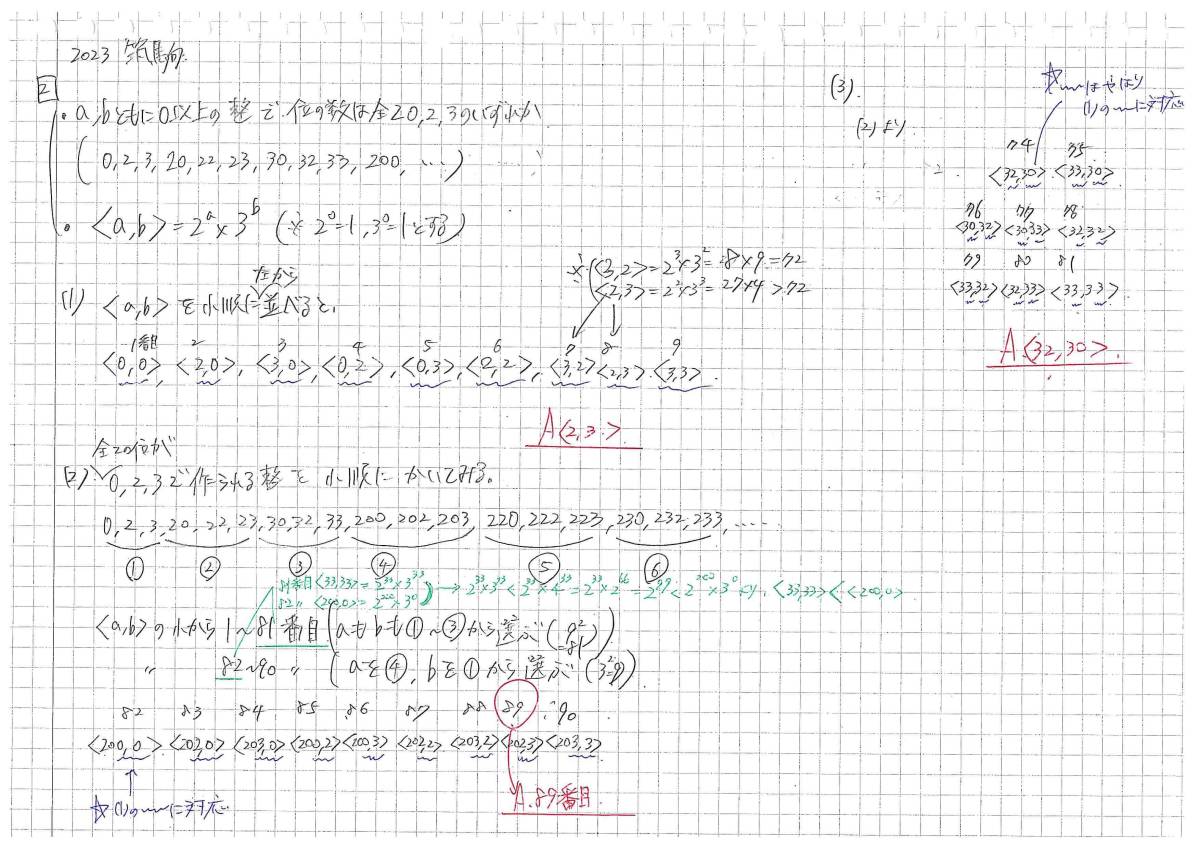 2023 筑駒
2
・a,bともに0以上の整で.位の数は全て0,2,3のいずれか
(0,2,3,20,22,23,30,32,33,200,…)
・<a,b>=2^a×3^b (※2^0=1,3^0=1とする)
※(<3,2>=2^3×3^2=8×9=72
<2,3>=2^2×3^3=27×4>72
左から
(1) <a,b>を小順に並べると,
1番目 2 3 4 5 6 7 8 9
<0,0>,<2,0>,<3,0>,<0,2>,<0,3>,<2,2>,<3,2><2,3>.<3,3>
A<2,3>
全ての位が
(2) 0,2,3で作られる整を小順にかいてみる。
0,2,3,20,22,23,30,32,33,200,202,203,220,222,223,230,232,233,……
① ② ③ ④ ⑤ ⑥
81番目<33,33>=2^33×3^33
82〃<200,0>=2^200×3^0
→2^33×3^33<2^33×4^33=2^33×2^66=2^99<2^200×3^0より.<33,33><<200,0>
<a,b>の小から1~81番目(aもbも①~③から選ぶ(9^2=81))
〃 82~90 〃 (aを④,bを①から選ぶ(3^2=9))
82 83 84 85 86 87 88 89 90
<200,0><202,0><203,0><200,2><200,3><202,2><203,2><202,3><203,3>
☆(1)の〰に対応
A.89番目
(3).
(2)より
☆〰はやはり
(1)の〰に対応
74 75
<32,30>.<33,30>
76 77 78
<30,32><30,33><32,32>
79 80 81
<33,32><32,33><33,33>
A.<32,30>.